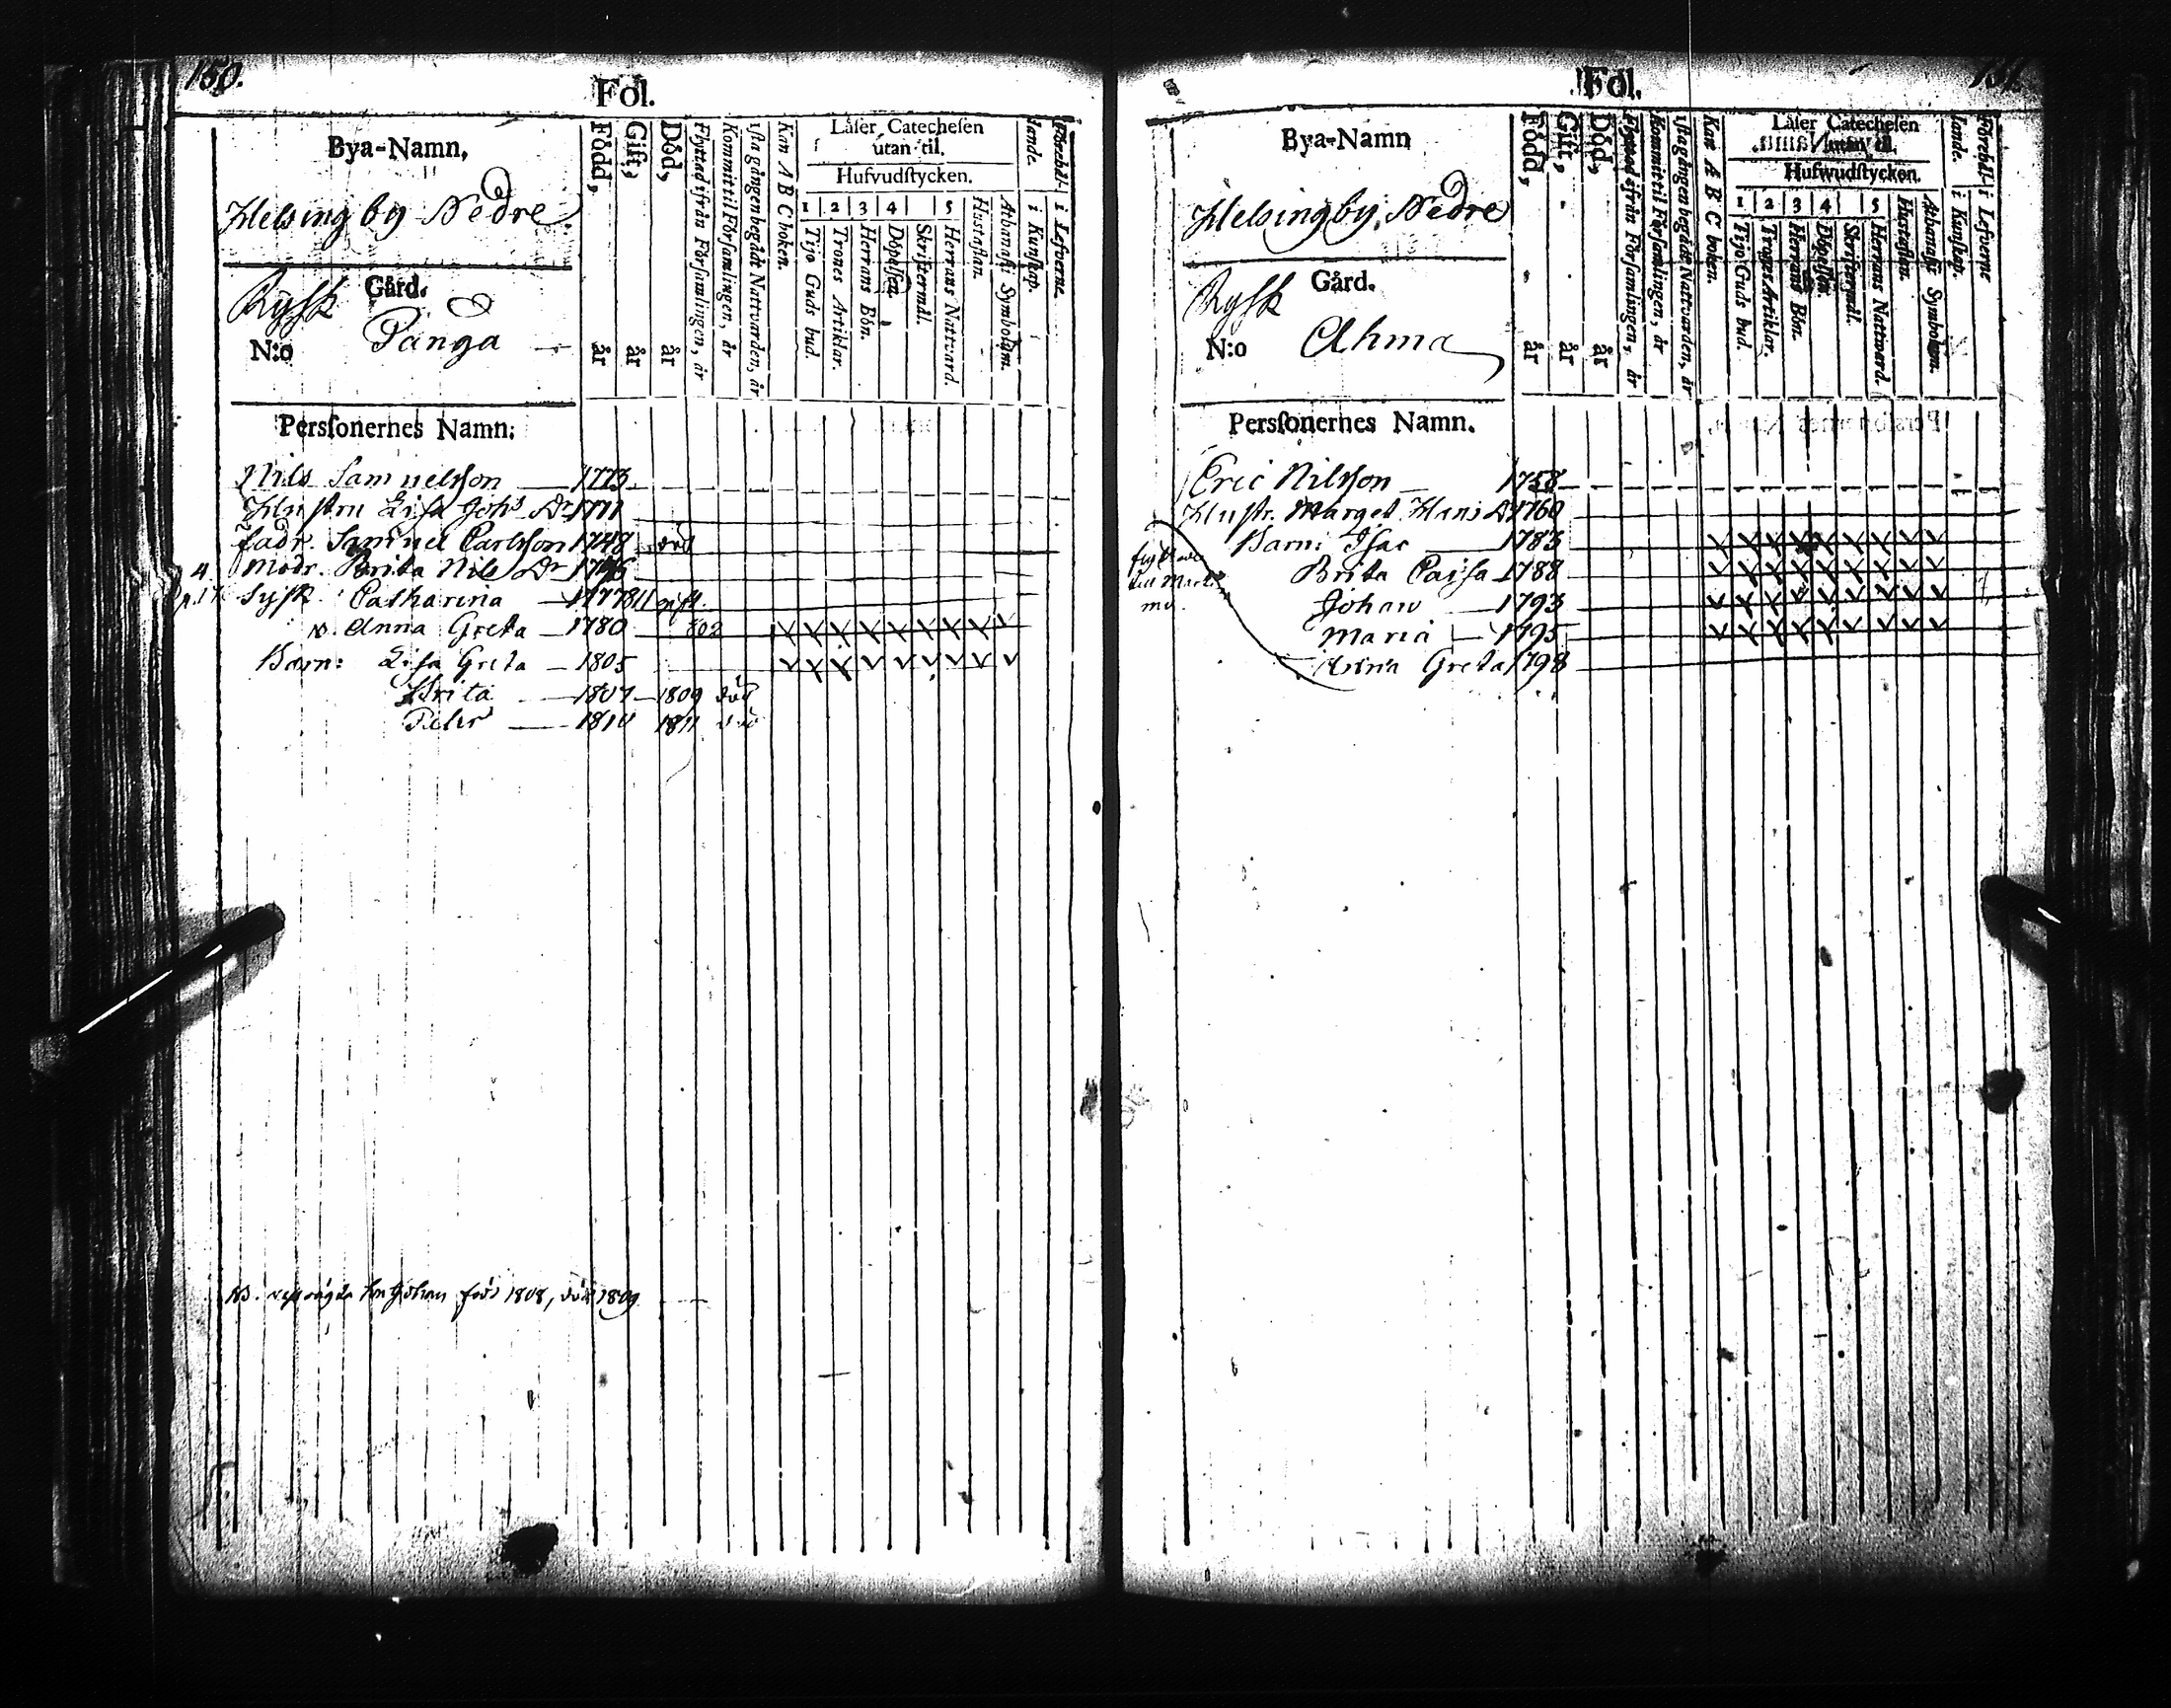 150.
Fol.
Bya-Namn,
Helsingby Nedre
Gård.
Rysk
Panga
N:o
Född, år
Gift, år
Död, år
Flyttad ifrån Församlingen, år
Kommit til Församlingen, år
Kan A B C boken.
Låser Catechesen
utan til.
Hufvudstycken.
1 2 3 4 5
Tijo Guds bud.
Trones Artiklar.
Herrans Bön.
Döpelsen
Skriftermål.
Herrans Nattvard.
Hustaflan.
Athanasii Symbolum.
i Kunskap.
i Lefverne
Personernes Namn:
Nils Samuelsson 1773
Hustru Lisa Johs Dr 1771
fadr. Samuel Carlsson 1748 död
Modr. Brita Nils Dr
Syst. Catharina gift.
Anna Greta 1780 802
Barn: Lisa Greta 1805
Brita 1807 1809 död
Pehr 1810 1811 död
son Johan född 1808, död 1809
Fol.
Bya-Namn
Helsingby, Nedre
Gård.
Rysk
Ahma
N:o
Född, år
Gift, år
Död, år
Flyttad ifrån Församlingen, år
Kommit til Församlingen, år
Kan A B C boken.
Låser Catechesen
utan til.
Hufwudstycken.
1 2 3 4 5
Tijo Guds bud.
Trones Artiklar.
Herrans Bön.
Döpelsen.
Skriftermål.
Herrans Nattward.
Hustaflan.
Athanasii Symbolum.
i Kunskap.
i Lefverne
Personernes Namn.
Eric Nilsson 1758
Hustr. Marget Hans Dr 1760
Barn: Isac 1783
Brita Cajsa 1788
Johan 1793
Maria 1795
Anna Greta 1798